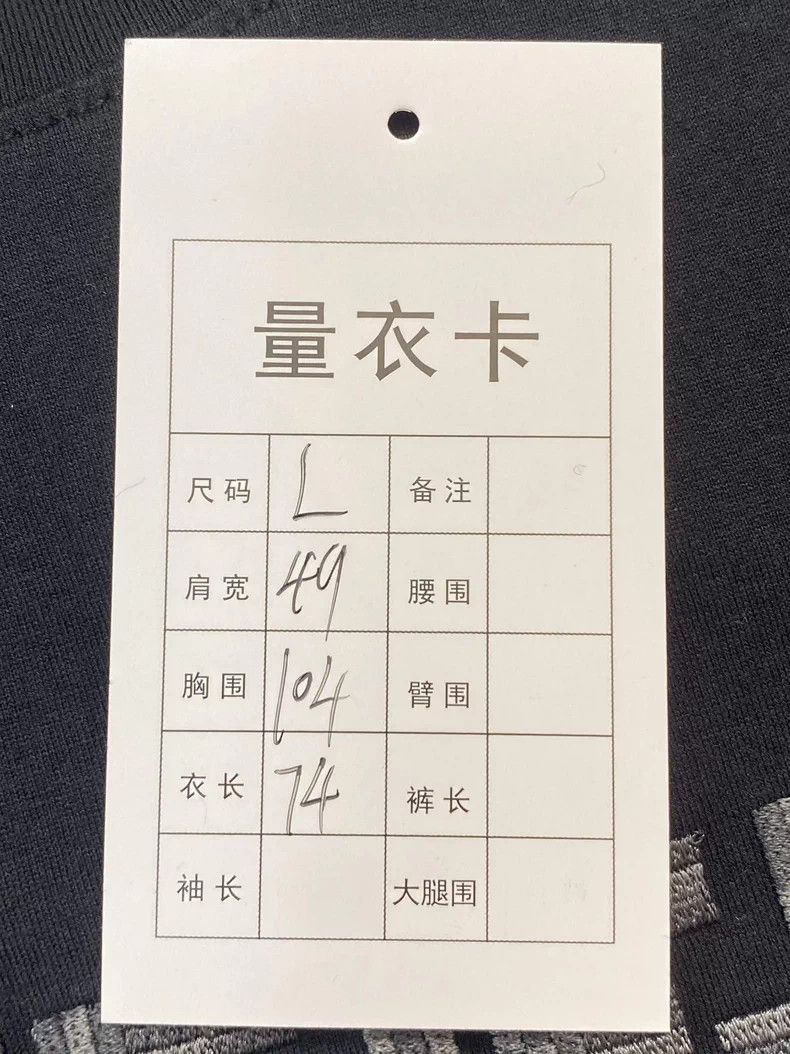 量衣卡
尺码 L 备注
肩宽 49 腰围
胸围 104 臂围
衣长 74 裤长
袖长 大腿围